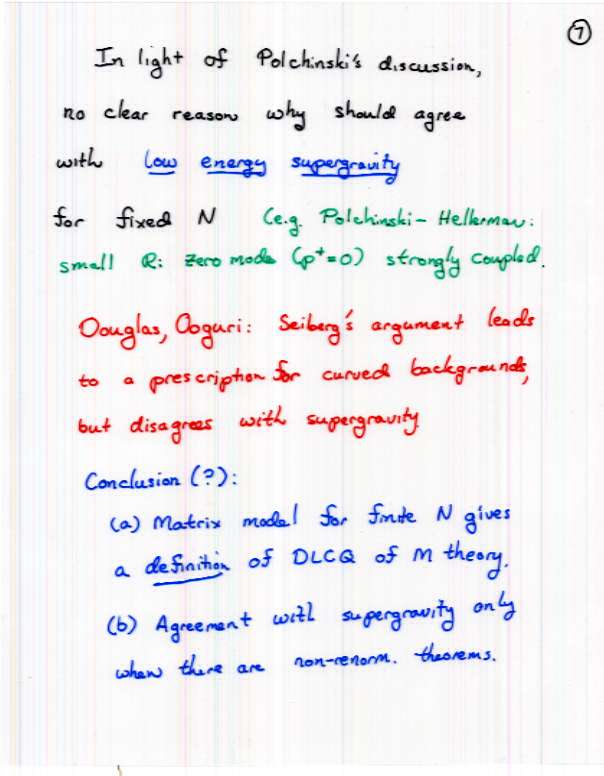 7
In light of Polchinski's discussion,
no clear reason why should agree
with low energy supergravity
for fixed N (e.g. Polchinski-Hellerman:
small R: zero mode (p+=0) strongly coupled.
Douglas, Ooguri: Seiberg's argument leads
to a prescription for curved backgrounds,
but disagrees with supergravity
Conclusion (?):
(a) Matrix model for finite N gives
a definition of DLCQ of M theory.
(b) Agreement with supergravity only
when there are non-renorm. theorems.